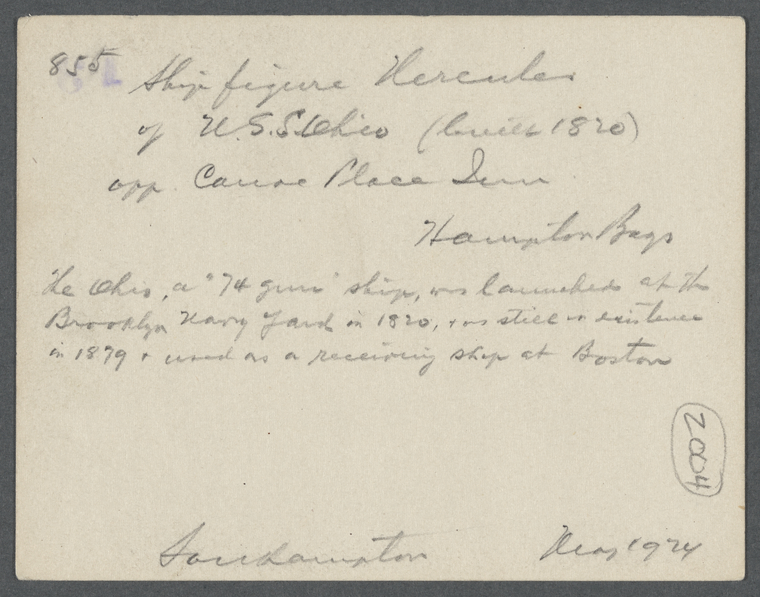 855 Ship figure Hercules
of U.S.S. Ohio (built 1820)
opp. Canoe Place Inn
Hampton Bays
The Ohio, a "74 gun" ship, was launched at the
Brooklyn Navy Yard in 1820, & was still in existence
in 1879 & used as a receiving ship at Boston
2004
Southampton May 1924